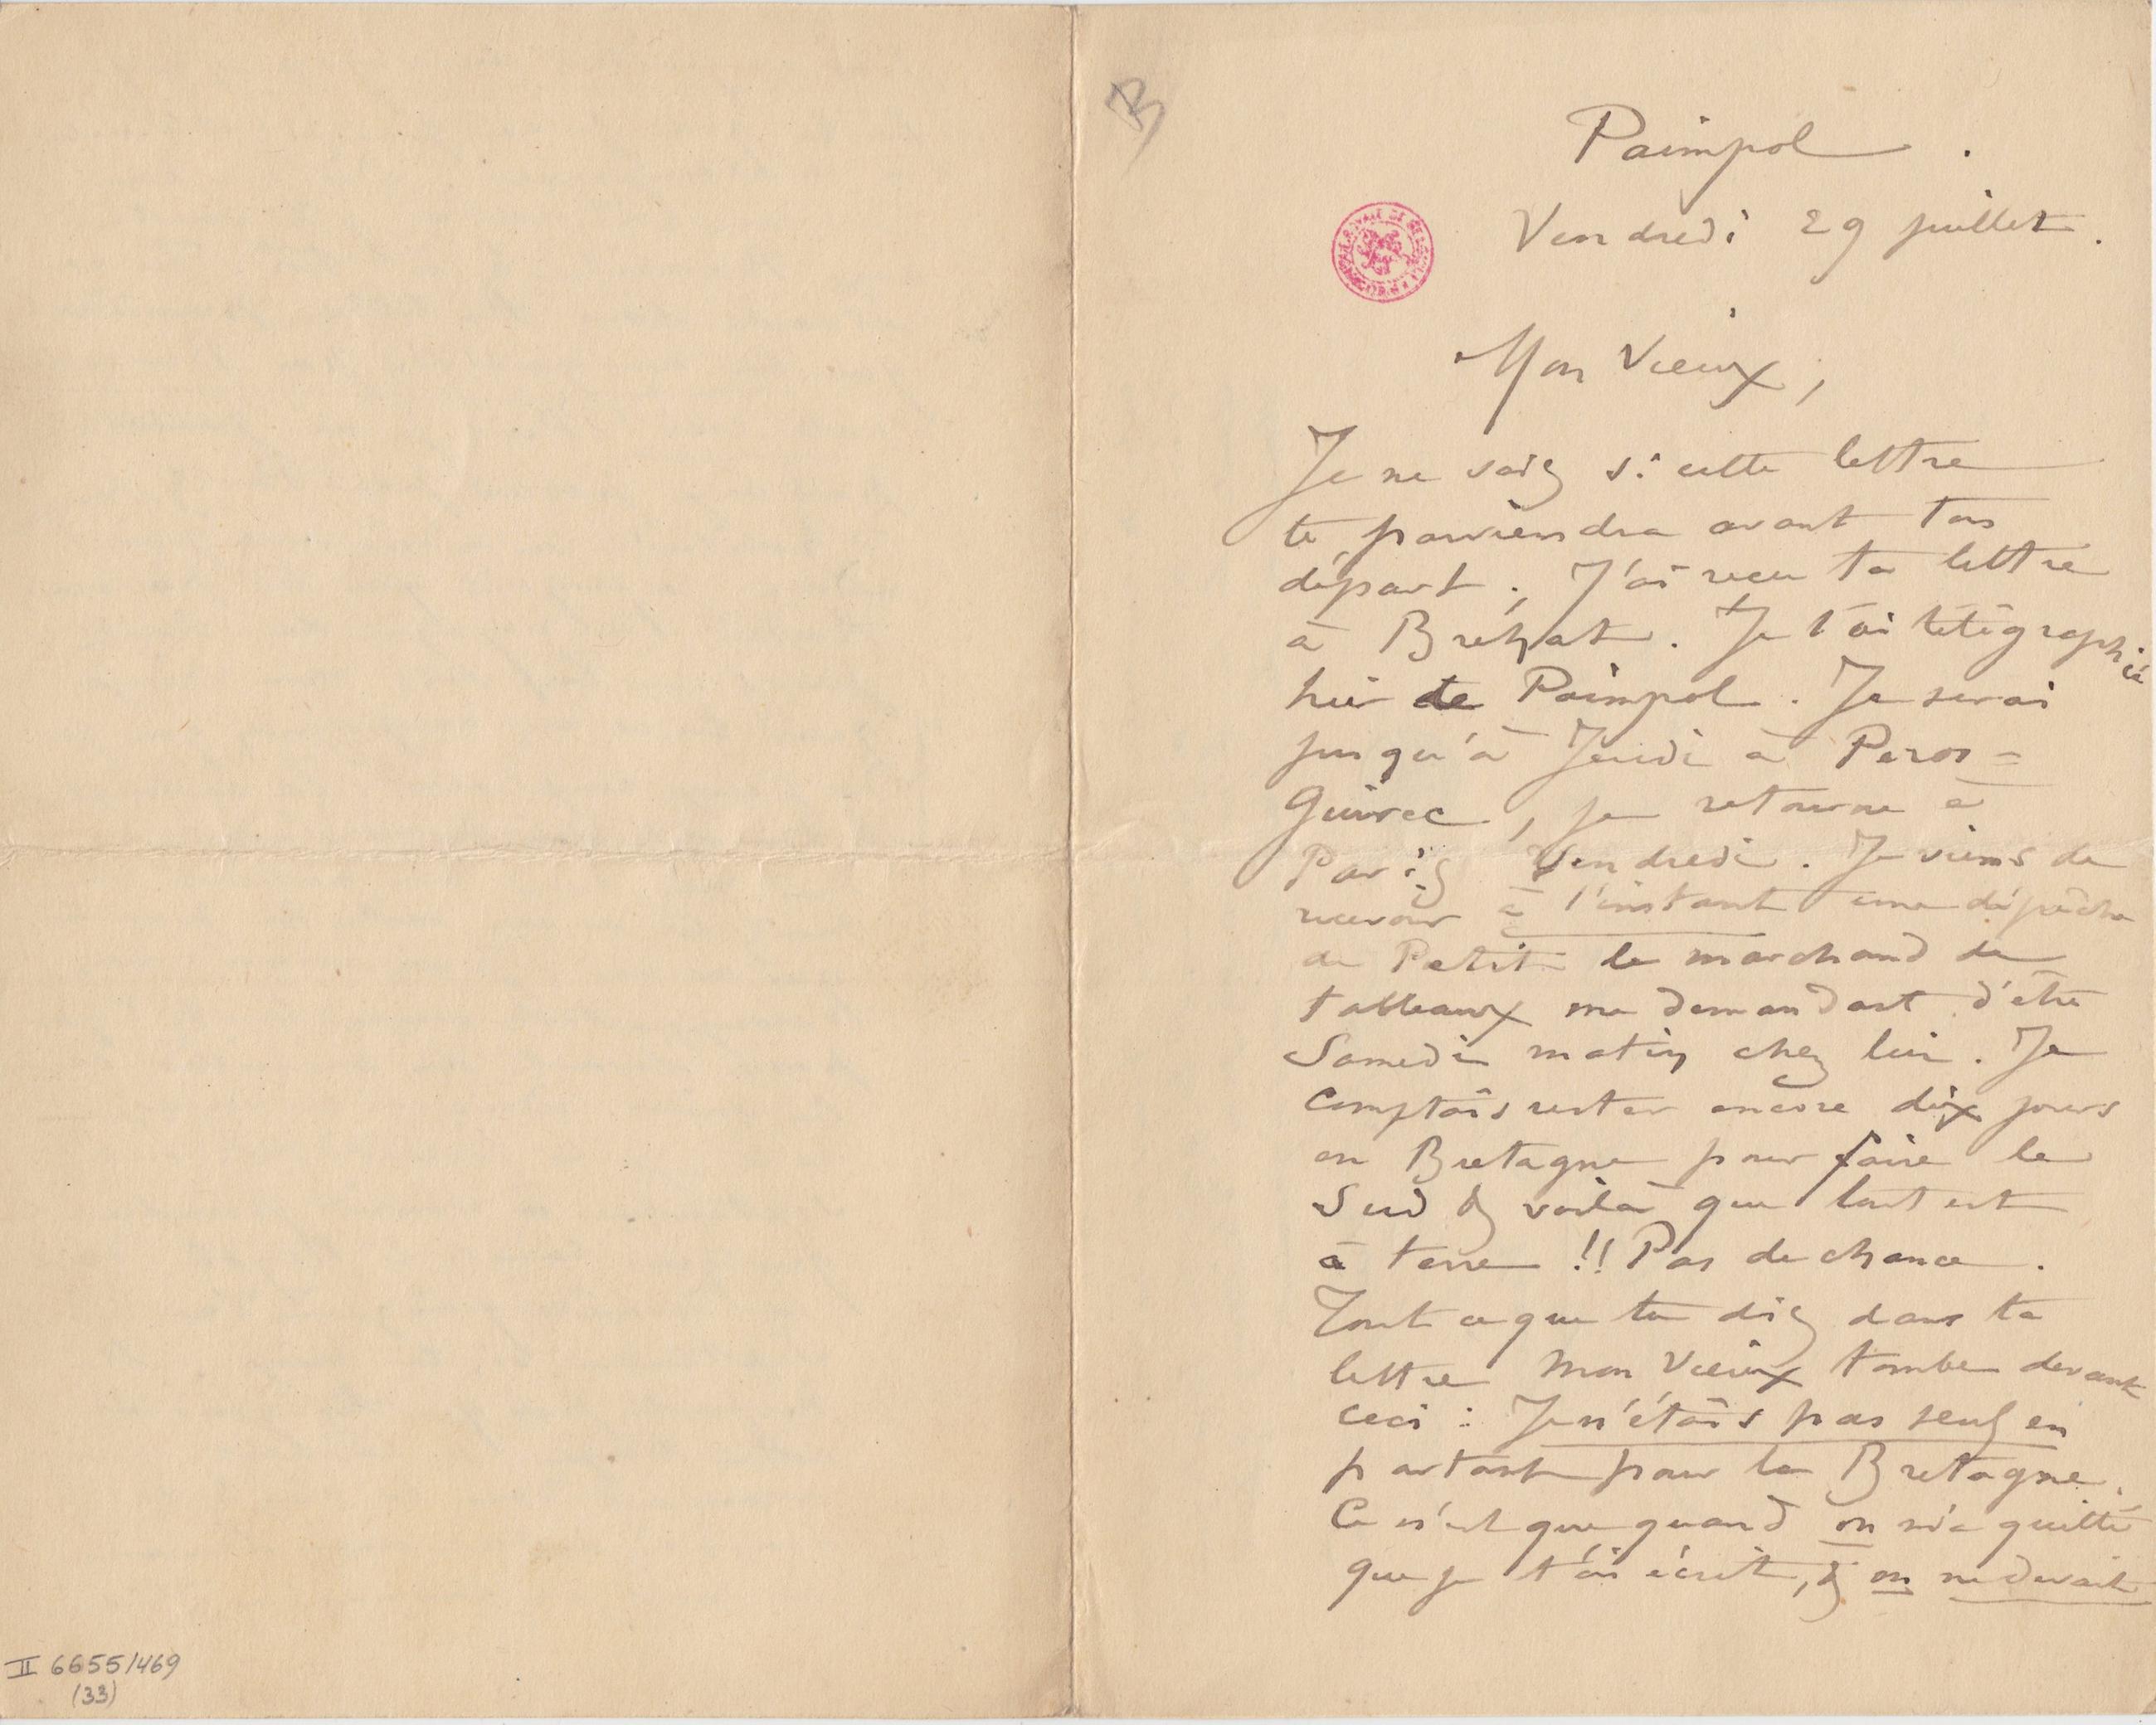 Paimpol.
Vendredi 29 juillet.
Mon Vieux,
Je ne sais si cette lettre
te parviendra avant ton
départ. J'ai recu ta lettre
à Bréhat. Je t'ai télégraphié
hier de Paimpol. Je serai
jusqu'à Jeudi à Peros=
Guirec, je retourne à
Paris Vendredi. Je viens de
recevoir à l'instant une dépêche
de Petit le marchand de
tableaux me demandant d'être
Samedi matin chez lui. Je
comptais rester encore dix jours
en Bretagne pour faire le
Sud & voilà que tout est
à terre !! Pas de chance.
Tout ce que tu dis dans ta
lettre Mon Vieux tombe devant
ceci : Je n'étais pas seul en
partant pour la Bretagne.
Ce n'est que quand on m'a quitté
que je t'ai écrit, & on ne devait
II 6655/469
(33)